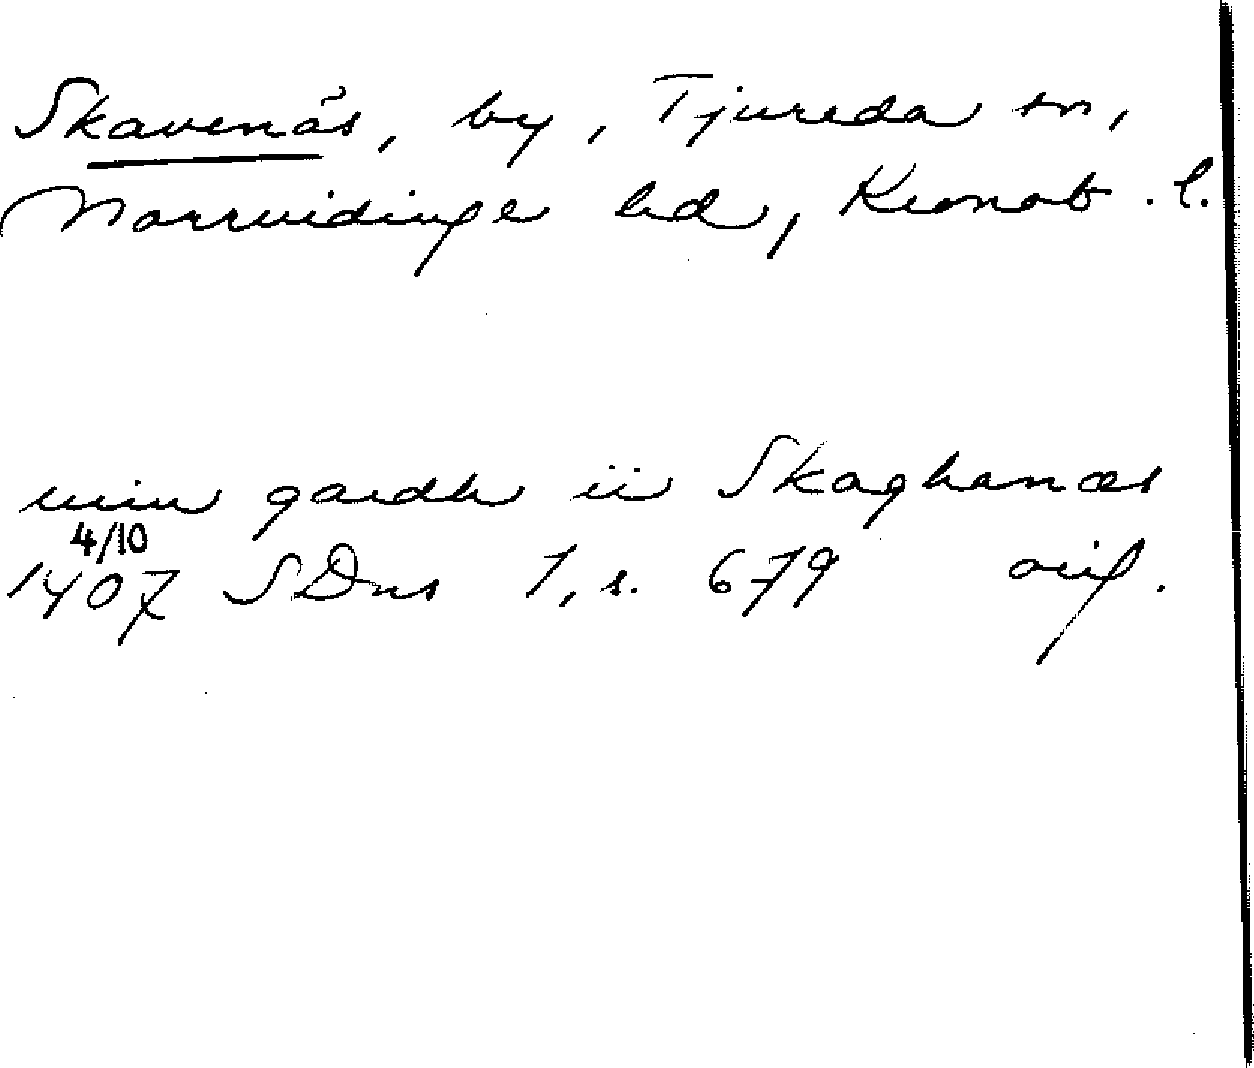 Skavenäs, by, Tjureda sn,
Norrvidinge hd, Kronob. l.
min gardh ii Skaghanæs
4/10
1407 SDns 1, s. 679 orig.